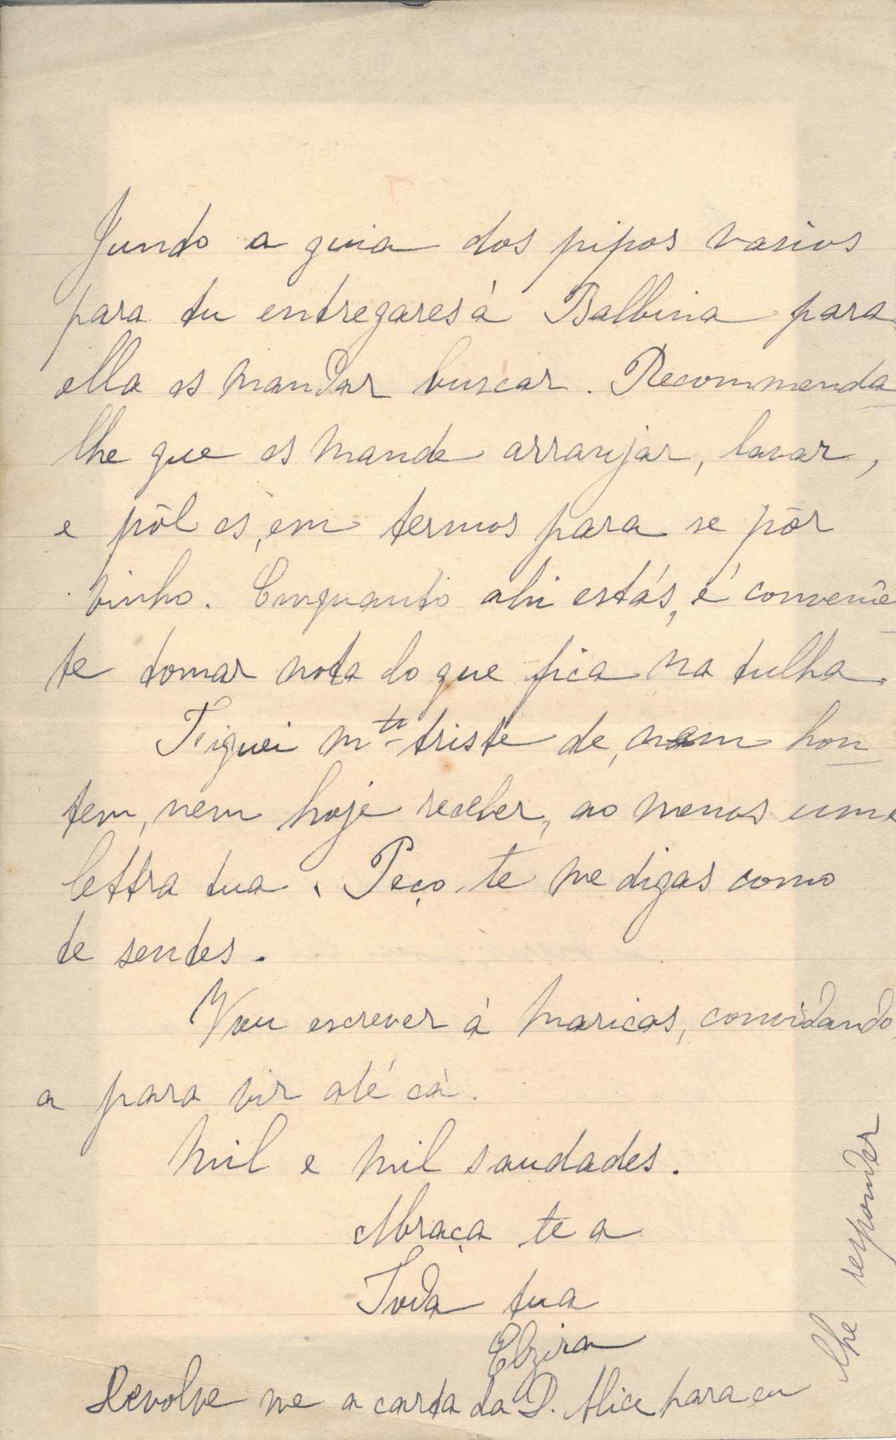 Junto a guia dos pipos vasios
para tu entregares á Balbina para
ella os mandar buscar. Recommenda
lhe que os mande arranjar, lavar,
e pôl os, em termos para se pôr
vinho. Emquanto ahi estás, é convenien
te tomar nota do que fica na tulha.
Fiquei mto triste de, nem hon
tem, nem hoje receber, ao menos uma
lettra tua. Peço te me digas como
te sentes.
Vou escrever á Maricas, convidando
a para vir até cá.
Mil e mil saudades.
Abraça te a
Toda tua
Elzira
Devolve me a carta da D. Alice para eu
lhe responder